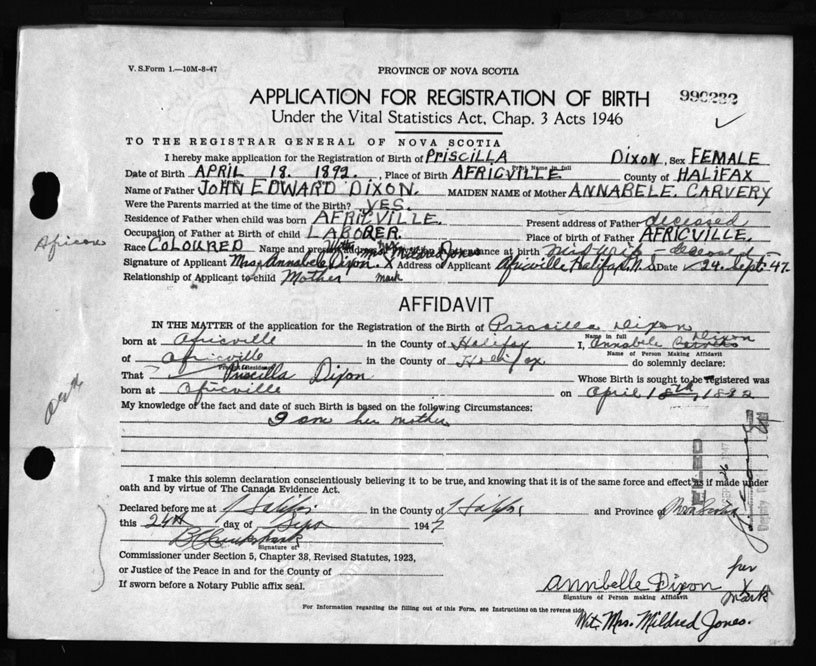 V. S. Form 1.—10M-8-47
PROVINCE OF NOVA SCOTIA
APPLICATION FOR REGISTRATION OF BIRTH 990232
Under the Vital Statistics Act, Chap. 3 Acts 1946
TO THE REGISTRAR GENERAL OF NOVA SCOTIA
I hereby make application for the Registration of Birth of PRISCILLA DIXON, Sex FEMALE
Print Name in full
Date of Birth APRIL 18. 1892, Place of Birth AFRICVILLE County of HALIFAX
Name of Father JOHN EDWARD DIXON. MAIDEN NAME of Mother ANNABELE CARVERY
Were the Parents married at the time of the Birth? YES.
Residence of Father when child was born AFRICVILLE. Present address of Father deceased
Occupation of Father at Birth of child LABORER. Place of birth of Father AFRICVILLE.
African
Race COLOURED Name and present address of in attendance at birth midwife - deceased
Witt. Mrs. Mildred Jones
Signature of Applicant Mrs. Annabele Dixon. X Address of Applicant Africville Halifax N.S. Date 24. Sept. 47.
her mark
Relationship of Applicant to child Mother
AFFIDAVIT
IN THE MATTER of the application for the Registration of the Birth of Priscilla Dixon
Name in full
born at Africville in the County of Halifax I, Annabele Dixon
Name of Person Making Affidavit
of Africville in the County of Halifax do solemnly declare:
That Priscilla Dixon Whose Birth is sought to be registered was
born at Africville on April 18th, 1892
My knowledge of the fact and date of such Birth is based on the following Circumstances:
I am her mother
I make this solemn declaration conscientiously believing it to be true, and knowing that it is of the same force and effect as if made under
oath and by virtue of The Canada Evidence Act.
Declared before me at Halifax in the County of Halifax and Province of Nova Scotia
this 24th day of Sept 1947
Signature of
Commissioner under Section 5, Chapter 38, Revised Statutes, 1923,
or Justice of the Peace in and for the County of
If sworn before a Notary Public affix seal.
Annbelle Dixon her X mark
Signature of Person making Affidavit
For Information regarding the filling out of this Form, see Instructions on the reverse side.
Wit. Mrs. Mildred Jones.
FILED